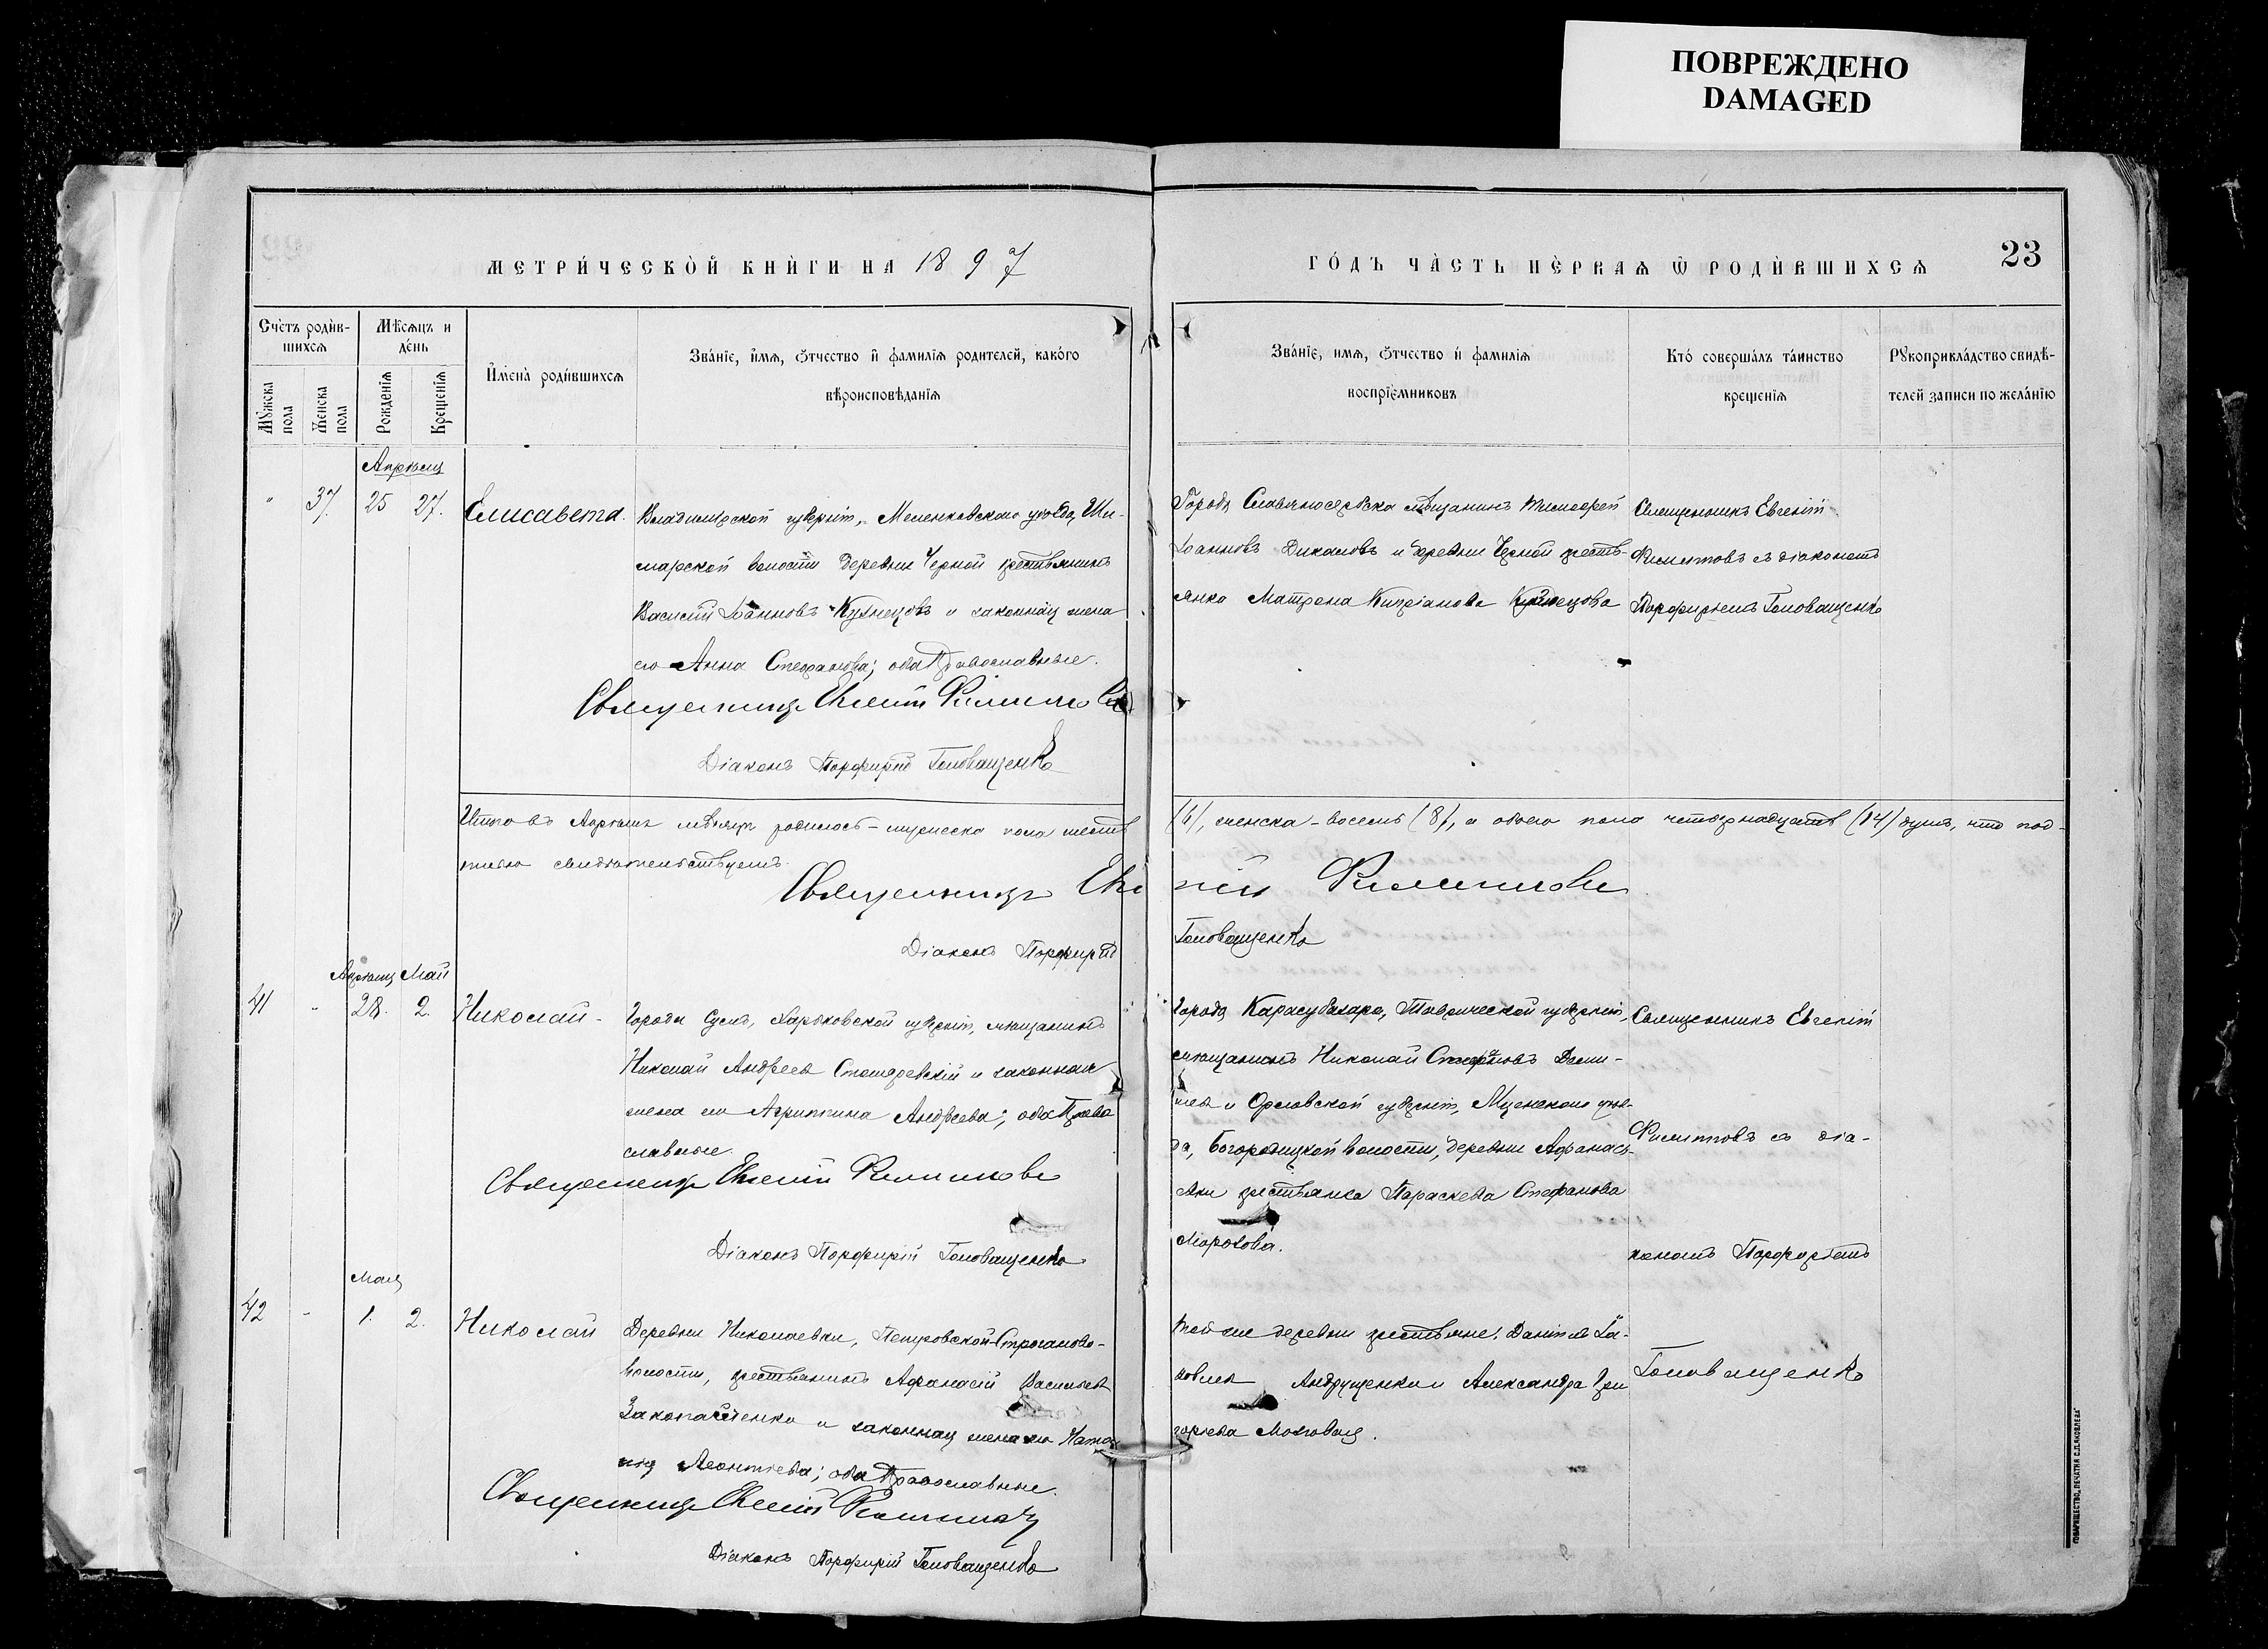 ПОВРЕЖДЕНО
DAMAGED
МЕТРИ́ЧЕСКОЙ КНИ́ГИ НА 1897
ГО́ДЪ ЧА́СТЬ ПЕ́РВАѦ Ѿ РОДИ́ВШИХСѦ
23
Сче́тъ роди́в-
шихсѧ
Мѣ́сѧцъ и
де́нь
Мꙋ́жска
пола
Же́нска
пола
Рожденїѧ
Крещенїѧ
И҆мена̀ роди́вшихсѧ
Зва́нїе, и҆́мѧ, ѻ҆́тчество и҆ фамилїѧ родителей, како́го
вѣроисповѣ́данїѧ
Зва́нїе, имѧ, ѻ҆́тчество и҆ фамилїѧ
воспрїе́мниковъ
Кто́ соверша́лъ та́инство
крещенїѧ
Рꙋкоприкла́дство свидѣ́-
телей записи по жела́нїю
Апрѣля
" 37. 25 27. Елисавета.
Владимирской губерніи, Меленковскаго уѣзда, Ши-
марской волости деревни Черной крестьянинъ
Василій Іоанновъ Кузнецовъ и законная жена
его Анна Стефанова; оба Православные.
Священникъ Евгеній Филиповъ
Діаконъ Порфирій Головащенко
Города Славяносербска мѣщанинъ Тимофей
Іоанновъ Дикаловъ и деревни Черной кресть-
янка Матрона Кипріанова Кузнецова
Священникъ Евгеній
Филиповъ съ діакономъ
Порфиріемъ Головащенко
Итого въ Апрѣлѣ мѣсяцѣ родилось - мужеска пола шесть
(6), женска - восемь (8), а обоего пола четырнадцать (14) душъ, что под-
писью свидѣтельствуемъ.
Священникъ Евгеній Филиповъ
Діаконъ Порфирій Головащенко
Апрѣля Май
41 " 28. 2. Николай -
Города Сумъ, Харьковской губерніи, мѣщанинъ
Николай Андреевъ и законная
жена его Агриппина Андреева; оба Право
славные.
Священникъ Евгеній Филиповъ
Діаконъ Порфирій Головащенко
Города Карасубазара, Таврической губерніи,
мѣщанинъ Николай Стефановъ
и Орловской губерніи, Мценскаго уѣз-
да, Богородицкой волости, деревни Афанась-
евки крестьянка Параскева Стефанова
Морозова.
Священникъ Евгеній
Филиповъ съ діа-
кономъ Порфиріемъ
Головащенко
Мая
42 - 1. 2. Николай
Деревни Николаевки, Петровской-Строганово-
волости, крестьянинъ Афанасій Васильевъ
и законная жена его Ната
лія Леонтіева; оба Православные.
Священникъ Евгеній Филиповъ
Діаконъ Порфирій Головащенко
Той же деревни крестьяне: Даніилъ Іа-
ковлевъ Андрущенко и Александра Гри
горіева Мозговая.
ТОВАРИЩЕСТВО „ПЕЧАТНЯ С.П.ЯКОВЛЕВА"